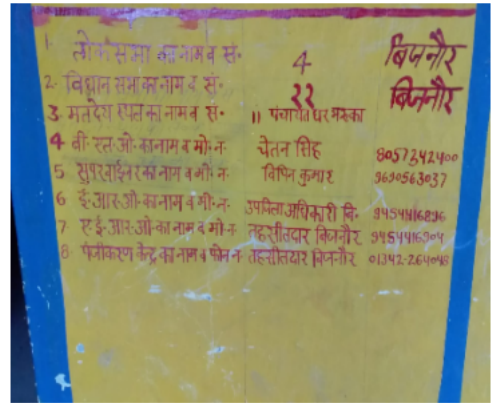 1 लोकसभा का नाम व सं॰ 4 बिजनौर
2- विधान सभा का नाम व सं॰ 22 बिजनौर
3 मतदेय स्थल का नाम व सं॰ 11 पंचायत घर
4 बी॰एल॰ओ॰ का नाम व मो॰ न॰ चेतन सिंह 8057342400
5 सुपरवाईजर का नाम व मो॰ न॰ विपिन कुमार 9690563037
6 ई॰आर॰ओ॰ का नाम व मो॰ न॰ उपजिला अधिकारी बि॰ 9454416896
7 ए॰ई॰आर॰ओ॰ का नाम व मो॰ न॰ तहसीलदार बिजनौर 9454416904
8- पंजीकरण केन्द्र का नाम व फोन न॰ तहसीलदार बिजनौर 01342-264048